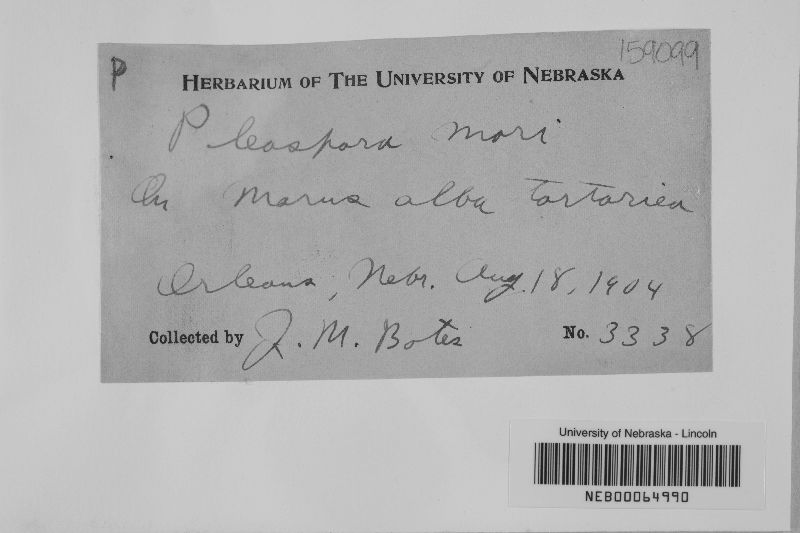 159099
P
HERBARIUM OF THE UNIVERSITY OF NEBRASKA
Pleospora mori
On Morus alba tartarica
Orleans, Nebr. Aug. 18, 1904
Collected by J. M. Bates No. 3338
University of Nebraska - Lincoln
NEB00064990